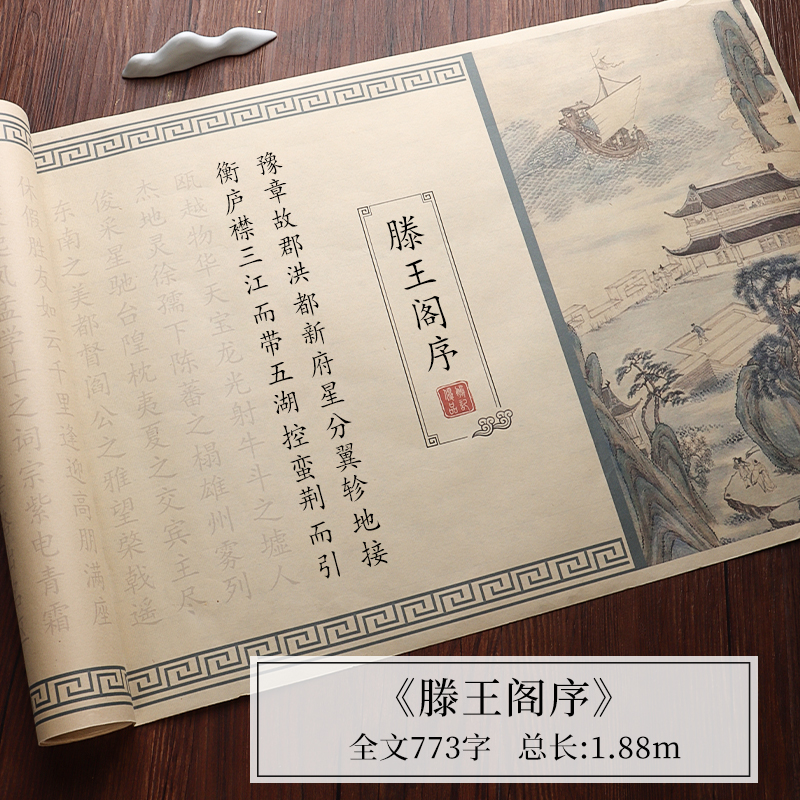 滕王阁序
豫章故郡洪都新府星分翼轸地接
衡庐襟三江而带五湖控蛮荆而引
瓯越物华天宝龙光射牛斗之墟人
杰地灵徐孺下陈蕃之榻雄州雾列
俊采星驰台隍枕夷夏之交宾主尽
东南之美都督阎公之雅望棨戟遥
休假胜友如云千里逢迎高朋满座
起凤孟学士之词宗紫电青霜
《滕王阁序》
全文773字 总长:1.88m